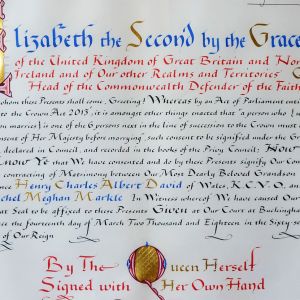 Elizabeth the Second by the Grace
of the United Kingdom of Great Britain and Nor
Ireland and of Our other Realms and Territories
Head of the Commonwealth Defender of the Faith
whom these Presents shall come, Greeting! Whereas by an Act of Parliament ent
to the Crown Act 2013", it is amongst other things enacted that "a person who
en married) is one of the 6 persons next in the line of succession to the Crown must
sent of Her Majesty before marrying" such consent to be signified under the Gre
declared in Council, and recorded in the books of the Privy Council; Now
Know Ye that We have consented and do by these Presents signify Our Co
contracting of Matrimony between Our Most Dearly Beloved Grandson
nce Henry Charles Albert David of Wales, K.C.V.O., and
chel Meghan Markle In Witness whereof We have caused Our
at Seal to be affixed to these Presents Given at Our Court at Buckingha
ce the fourteenth day of March Two Thousand and Eighteen in the Sixty-se
of Our Reign
By The Queen Herself
Signed with Her Own Hand